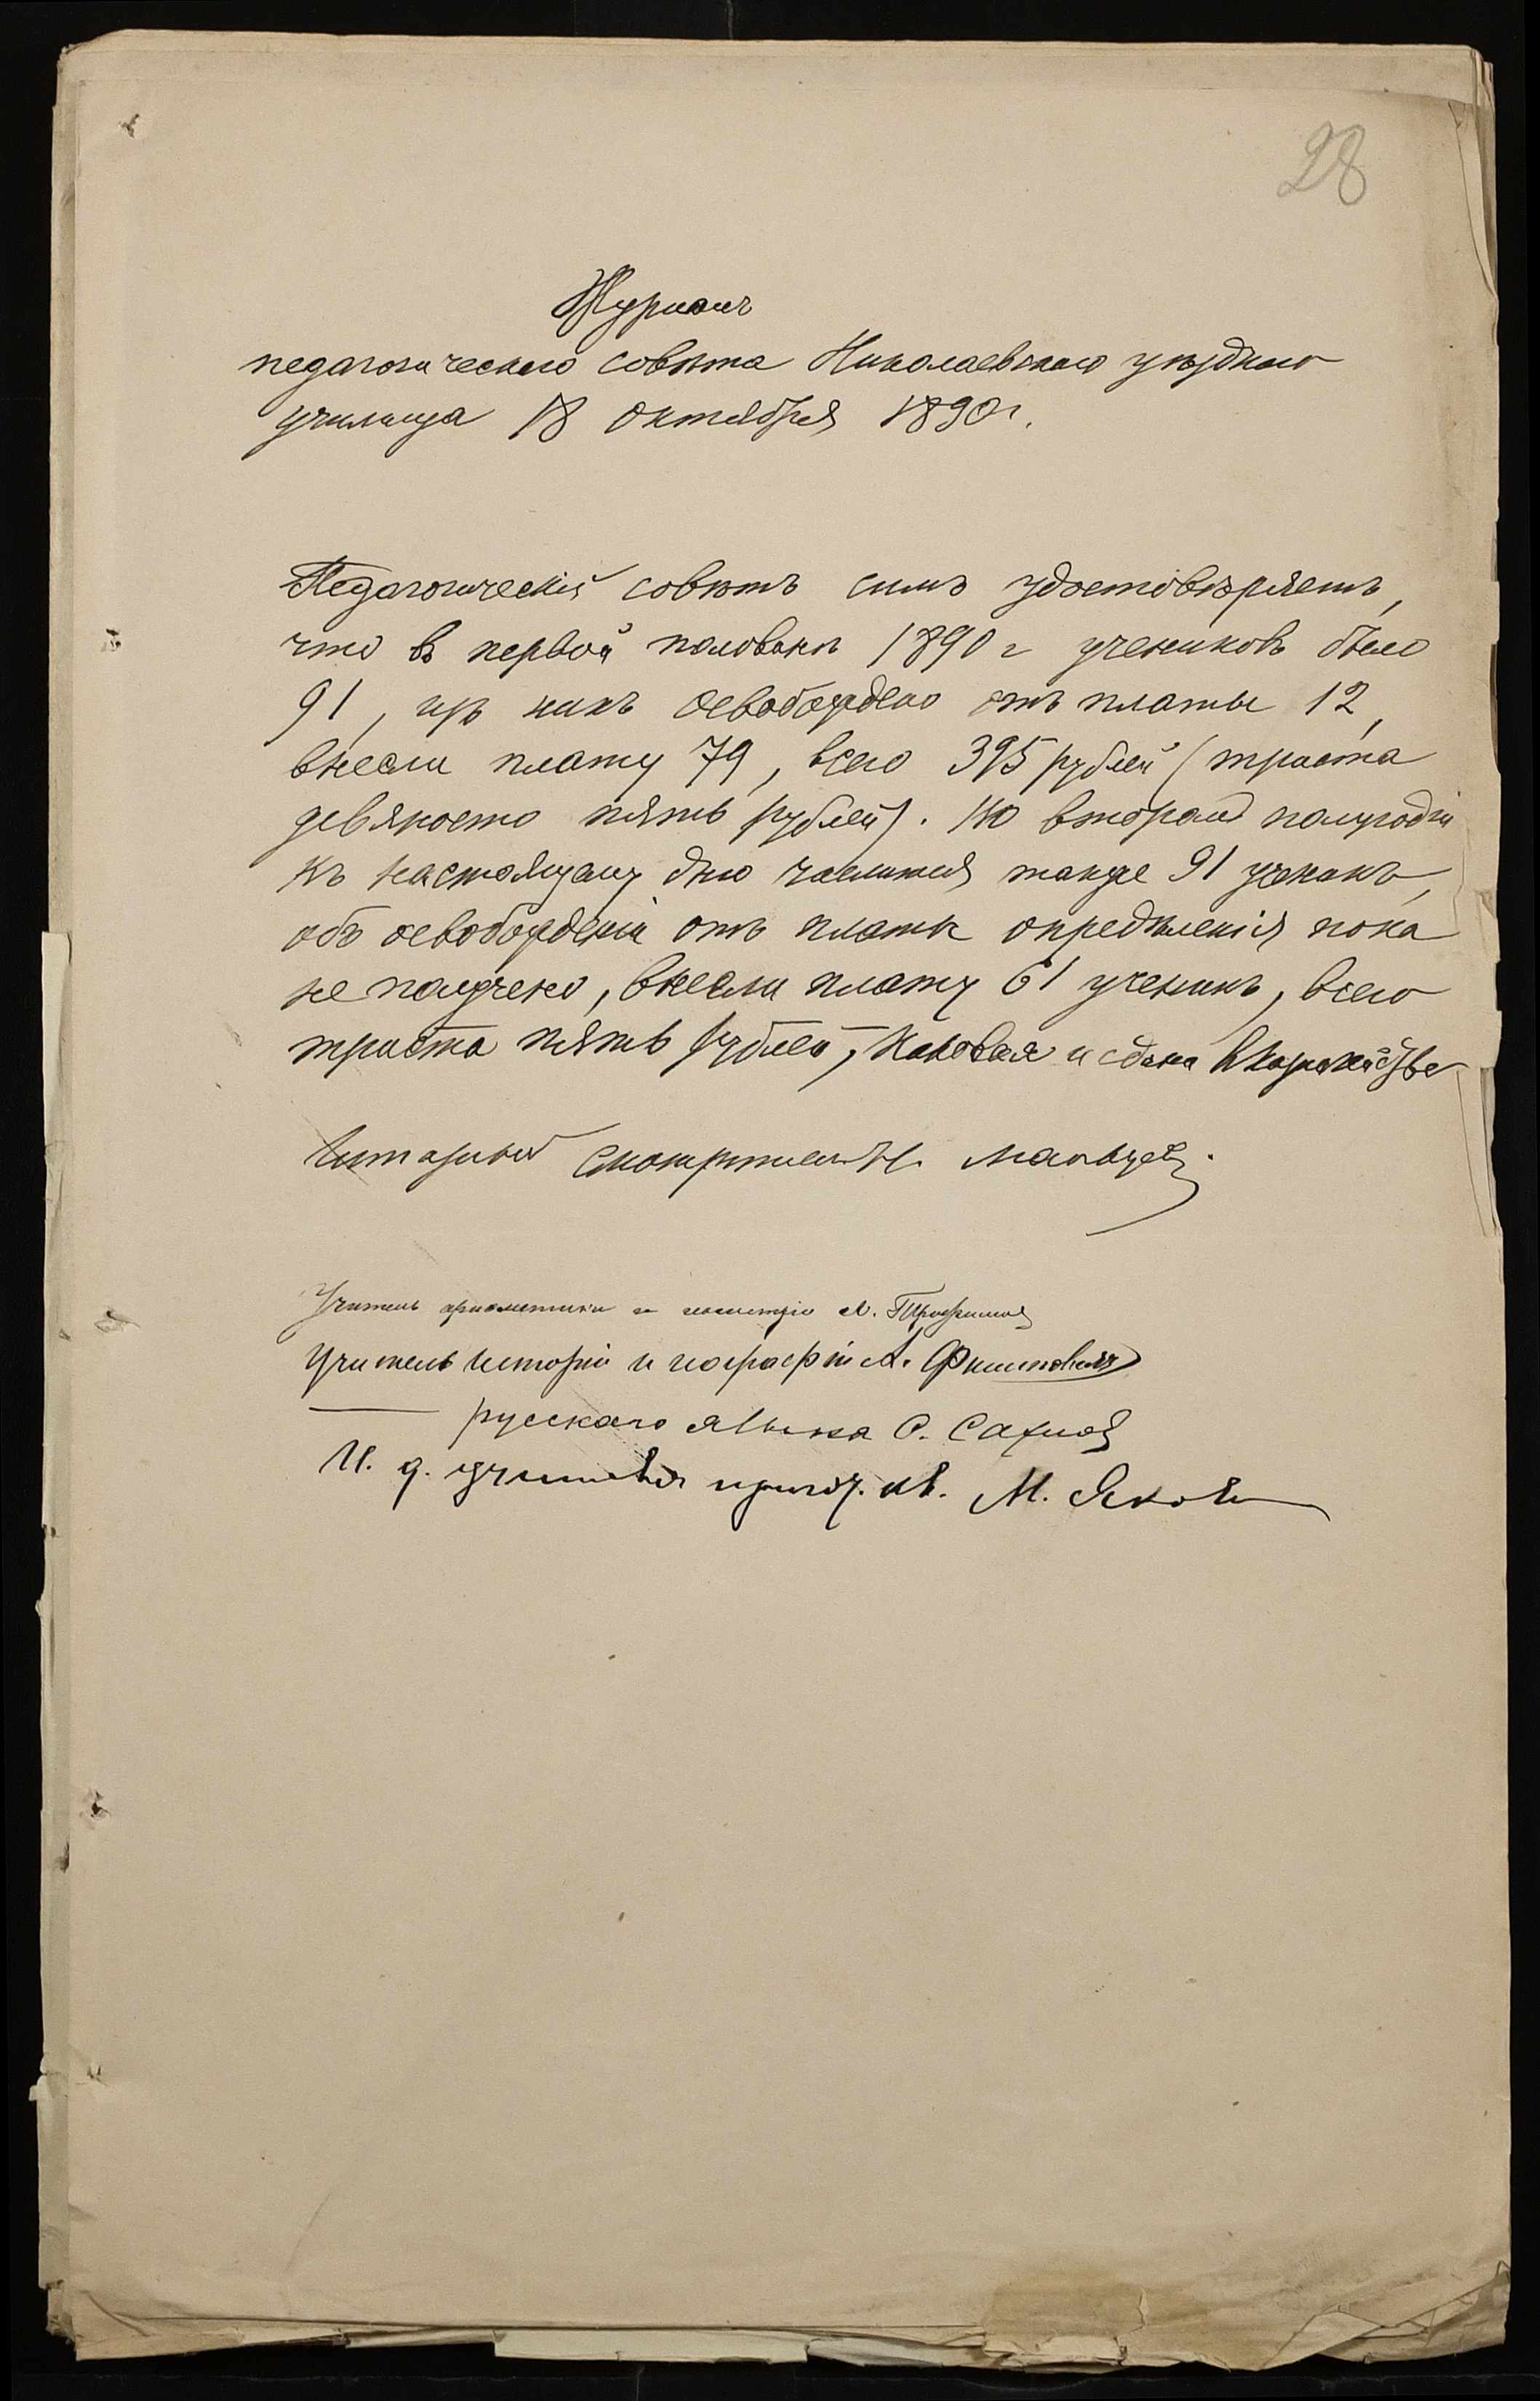 28
Журналъ
педагогическаго совѣта Николаевскаго уѣзднаго
училища 18 октября 1890 г.
Педагогическій совѣтъ симъ удостовѣряетъ,
что въ первой половинѣ 1890 г учениковъ было
91, изъ нихъ освобождено отъ платы 12,
внесли плату 79, всего 395 рублей (триста
девяносто пять рублей). Во второмъ полугодіи
къ настоящему дню числится также 91 ученикъ,
объ освобожденіи отъ платы опредѣленія пока
не получено, внесли плату 61 ученикъ, всего
триста пять рублей, каковая и сдана в казначейство
Штатный смотритель Н. Мальцев.
Учитель ариѳметики и геометріи
Учитель исторіи и географіи А.
русскаго языка С.
И. д. учителя М.